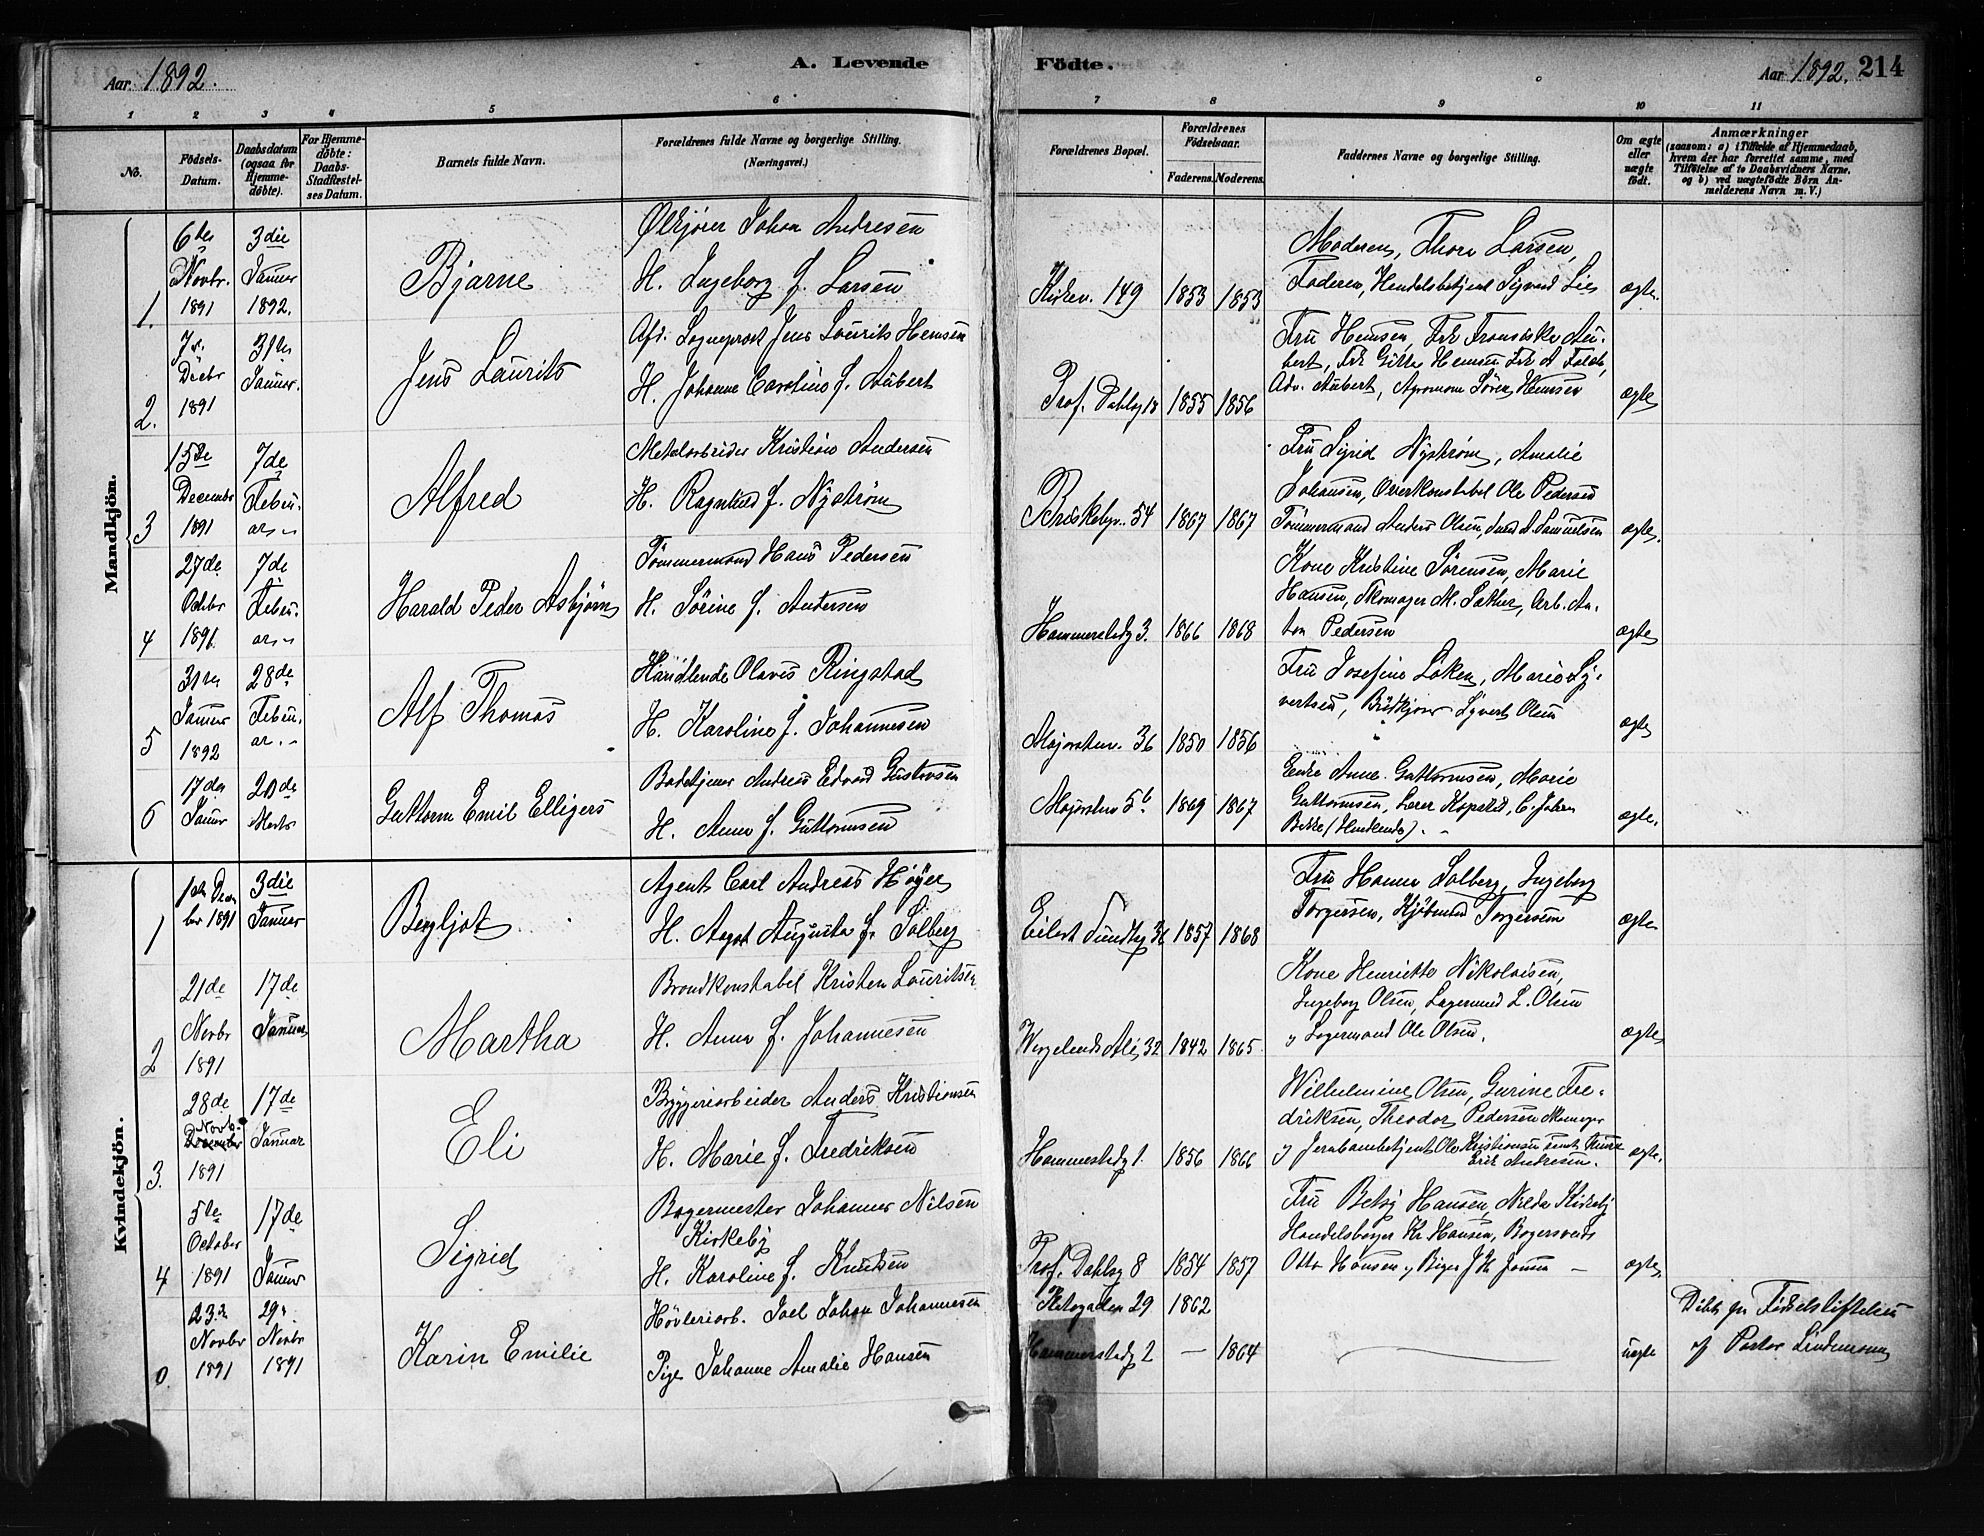 Aar 1892.
A. Levende
Födte.
Aar 1892. 214
1 2 3 4 5 6 7 8 9 10 11
No.
Födsels-Datum.
Daabsdatum (ogsaa for Hjemmedöbte).
For Hjemmedöbte: Daabs-Stadfæstelses Datum.
Barnets fulde Navn.
Forældrenes fulde Navne og borgerlige Stilling.
(Næringsvei.)
Forældrenes Bopæl.
Forældrenes Födselsaar.
Faderens. Moderens.
Faddernes Navne og borgerlige Stilling.
Om ægte eller uægte födt.
Anmærkninger
(saasom: a) i Tilfælde af Hjemmedaab, hvem der har forrettet samme, med Tilföielse af to Daabsvidners Navne, og b) ved uægtefödte Börn Anmelderens Navn m. V.)
Mandkjön.
1. 6te Novbr. 1891
3die Januar 1892.
Bjarne
Ølkjører Johan Andresen
H. Ingeborg f. Larsen
Kirkev. 149 1853 1853
Moderen, Thora Larsen,
Faderen, Handelsbetjent Sigurd Lie
ægte.
2. 7de Decbr 1891
31te Januar.
Jens Laurits
Afd. Sogneprest Jens Laurits
H. Johanne Caroline f. Aubert
Prof. Dahlsg 1855 1856
Fru
bert, Frk Gitte
Adv. Aubert, Agronom Sören
ægte
3 15de December 1891
7de Februar
Alfred
Metalarbeider Kristian Andersen
H. Ragnhild f. Nyström
Briskebyv. 54 1867 1867
Fru Sigrid Nyström, Amalie
Johansen, Overkonstabel Ole Pedersen
Tömmermand Anders Olsen, A. Samuelsen
ægte.
4 27de Octbr 1891.
7de Februar
Harald Peder Asbjörn
Tömmermand Hans Pedersen
H. Sörine f. Andersen
Hammerstadg 3. 1866 1868
Kone Kristine Sörensen, Marie
Hansen, Skomager M. Sather, Arb. An-
ton Pedersen
ægte
5 31te Januar 1892
28de Februar
Alf Thomas
Handlende Olaves Ringstad
H. Karoline f. Johannesen
Majorstuv. 36 1850 1856
Fru Josefine Löken, Marie Sy-
vertsen, Syvert Olsen
ægte
6 17de Januar
20de Marts
Guttorm Emil Elligers
Badetjener Andreas Edvard Gustavsen
H. Anna f. Guttormsen
Majorstuv 5b 1869 1867
Anne Guttormsen, Marie
Guttormsen, Lærer C. Johan
Bekke (Handlende).
ægte.
Kvindekjön.
1 1ste Decbr 1891
3die Januar
Bergljot
Agent Carl Andreas Höyer
H. Aagot Augusta f. Solberg
Eilert Sundtsg 36 1857 1868
Fru Hanna Solberg, Ingeborg
Torgersen, Kjöbmand Torgersen
ægte
2 21de Novbr 1891
17de Januar
Martha
Brandkonstabel Kristen Lauritsen
H. Anna f. Johannesen
Wergelands Alé 32 1842 1865.
Kone Henriette Nikolaisen,
Ingeborg Olsen, Lagermand L. Olsen
og Lagermand Ole Olsen.
ægte
3. 28de Novb. December 1891
17de Januar
Eli
Bryggeriarbeider Anders Kristiansen
H. Marie f. Fredriksen
Hammerstadg 1. 1856 1866
Wilhelmine Olsen, Gurine Fre-
driksen, Theodor Pedersen Skomager
og Jernbanebetjent Ole Kristiansen samt
Erik Andresen.
ægte.
4 5te October 1891
17de Januar
Sigrid
Bagermester Johannes Nilsen
Kirkeby
H. Karoline f. Knudsen
Prof. Dahlsg 8 1854 1857
Fru Betsy Hansen, Nilda Kirkeby
Handelsborger Kr Hansen, Bagersvend
Otto Hansen og Bager J. Kr Jansen
ægte.
0. 23de Novbr 1891
29de Novbr 1891
Karin Emilie
Høvleriarb. Joel Johan Johannesen
Pige Johanne Amalie Hansen
29 1862
Hammerstadg 2 — 1864
uægte
Döbt paa Födselsstiftelsen
af Pastor Lindemann